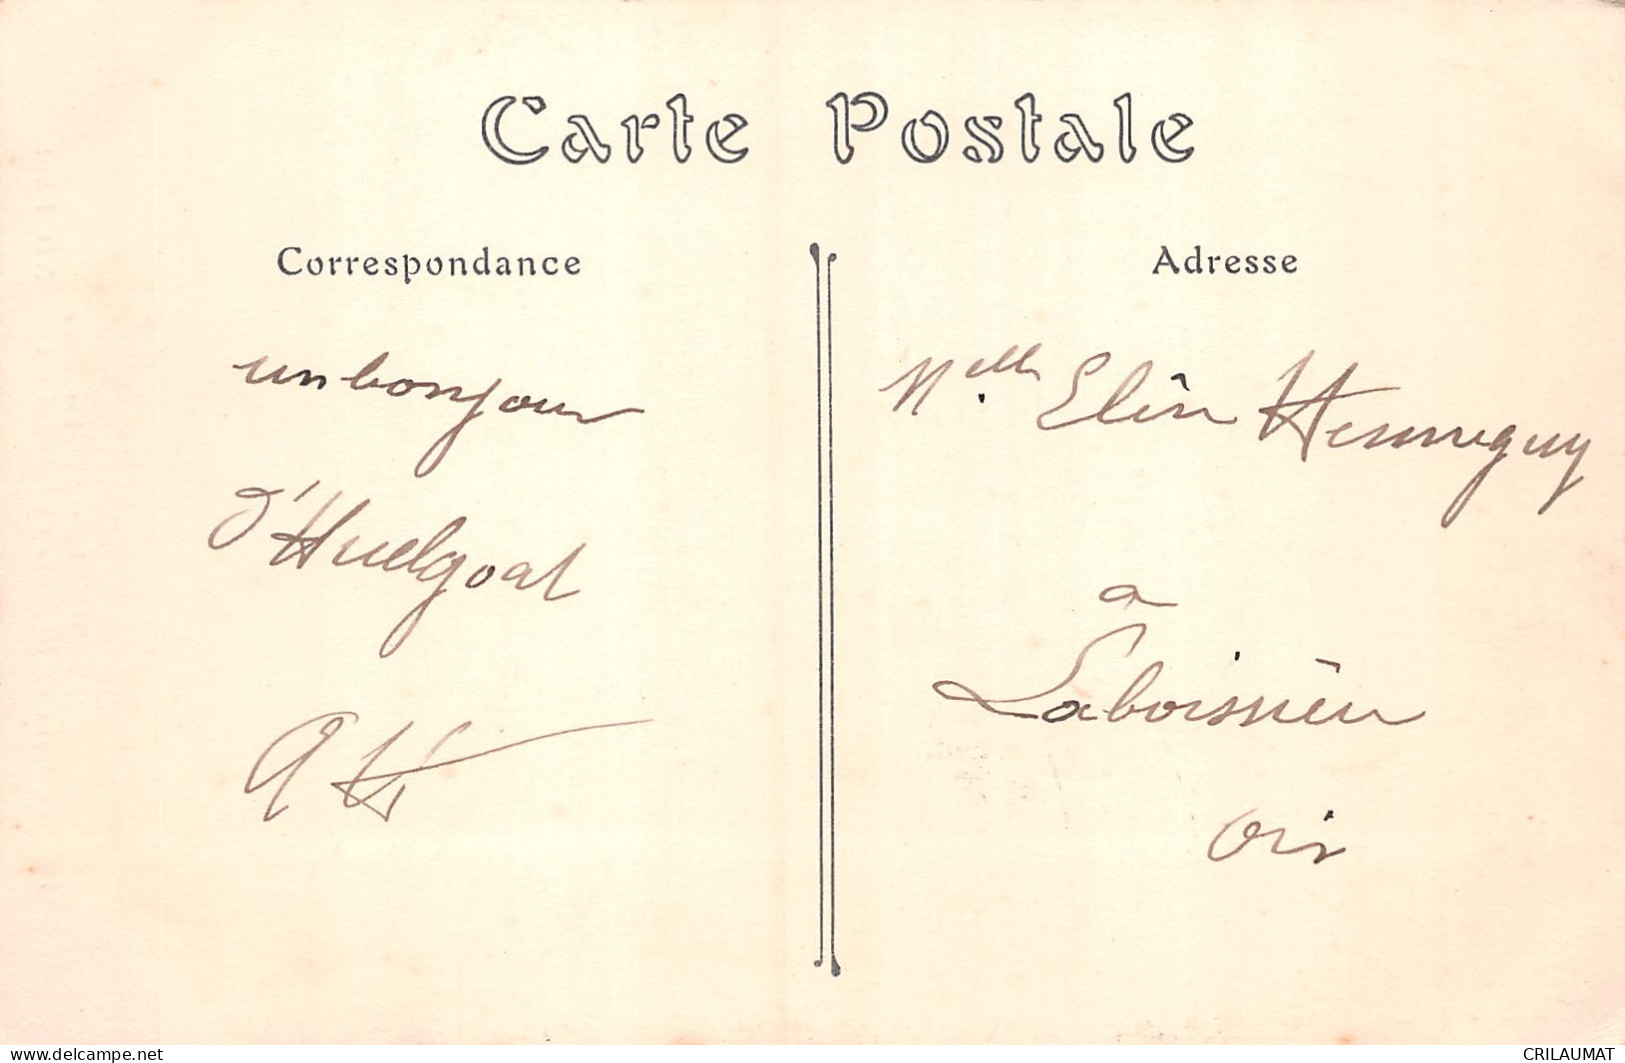 Carte Postale
Correspondance
un bonjour
d'Huelgoat
Adresse
Melle Elise Henneguy
a
Laboissière
Oise
www.delcampe.net
CRILAUMAT